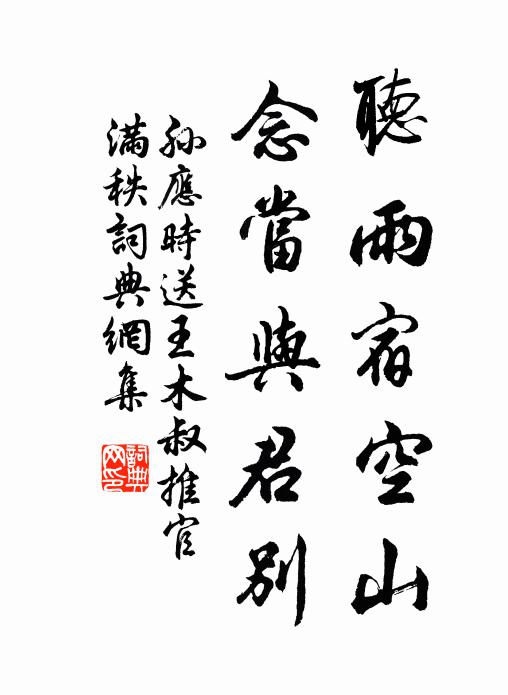 聽雨宿空山
念當與君別
孫應時送王木叔推官
滿秩詞典網集
詞典
网印